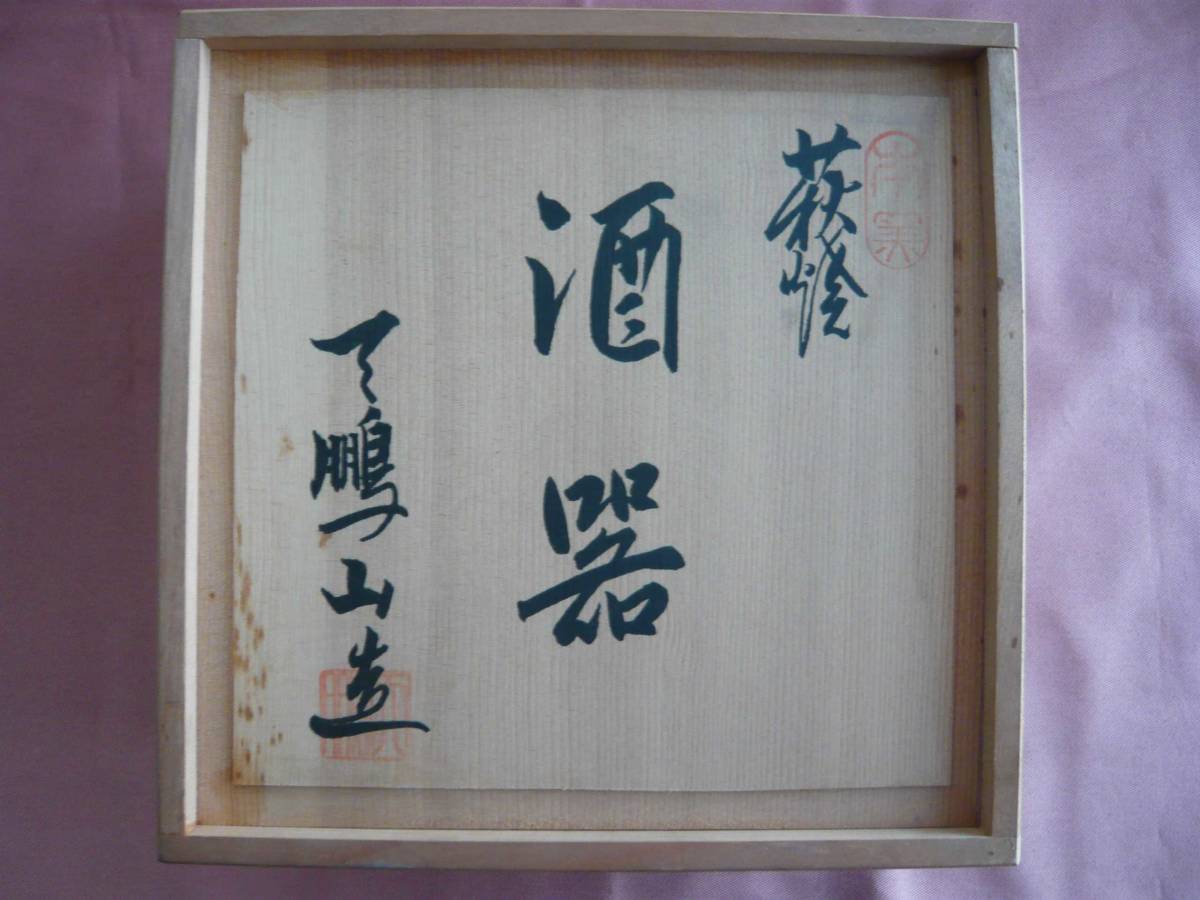 萩焼
酒器
天鵬山造